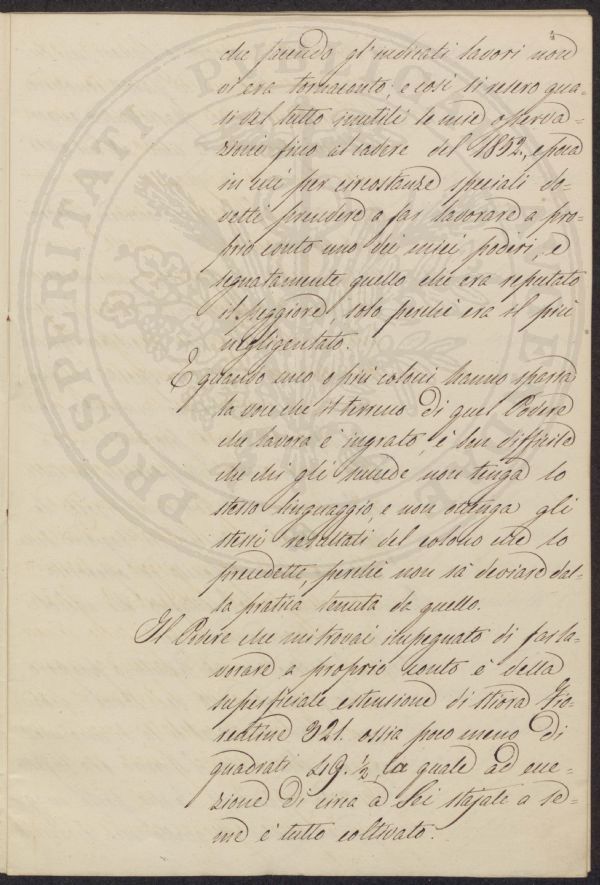 4
che facendo gl'indicati lavori non
vi era tornaconto; e così si resero qua-
si del tutto inutili le mie osserva-
zioni fino al cadere del 1852., epoca
in cui per circostanze speciali do-
vetti prendere a far lavorare a pro-
prio conto uno dei miei poderi, e
segnatamente quello che era reputato
il peggiore, solo perché era il più
negligentato.
E quando uno o più coloni hanno sparsa
la voce che il terreno di quel Podere
che lavora è ingrato, è ben difficile
che chi gli succede non tenga lo
stesso linguaggio, e non ottenga gli
stessi resultati del colono che lo
precedette, perché non sà deviare dal-
la pratica tenuta da quello.
Il Podere che mi trovai impegnato di far la-
vorare a proprio conto è della
superficiale estensione di stiora Fio-
rentine 321. ossia poco meno di
quadrati 49. ½, la quale ad ecce-
zione di circa a Sei stajate a se-
me è tutto coltivato.
PROSPERITATI PUBLICAE